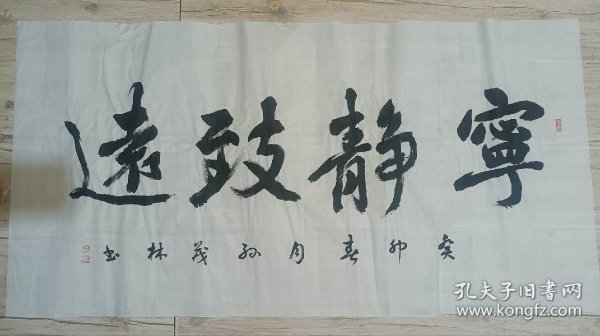 寧靜致遠
癸卯春月孙茂林书
孔夫子旧书网
www.kongfz.com